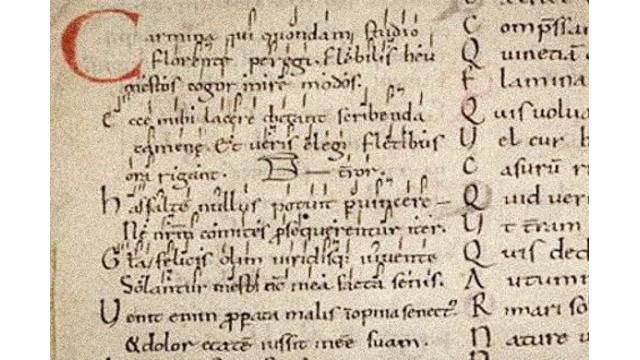 Carmina qui quondam studio
Florente peregi. Flebilis heu
mestos cogor inire modos.
Ecce mihi lacere dictant scribenda
camene. Et ueris elegi fletibus
ora rigant. t̄ror.
has saltē nullus potuit puincere
Ne nr̄m comites ꝓsequerentur iter.
Gl̄a felicis olim uiridisq; iuuente
Solantur mesti nc̄ mea facta senis.
Uenit enim ꝓpata malis inopina senect'
& dolor etatē iussit inēe suam.
Comp̄ssan
Flamina
Quis uolua
Uel cur h
Casurū r
Quid ver
Ut t̄ram
Quis ded
Autumn
Rimari so
Nature u